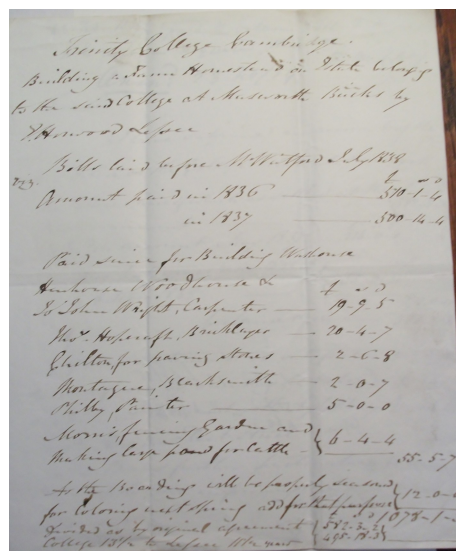 Trinity College Cambridge.
Building a Farm Homestead on Estate belongs
to the said College at Mursworth Bucks by
P. Horwood Lessee
Bills laid before Mr Whitford July 1838
£ s d
Amount paid in 1836 — 570-1-4
in 1837 — 500-14-4
Paid since for Building
Henhouse Woodhouse &c £ s d
To John Wright, Carpenter — 19-9-5
Thos. Hopcraft, Bricklayer — 20-4-7
Chilton, for paving stones — 2-6-8
Montague, Blacksmith — 2-0-7
Philby, Painter — 5-0-0
Morris, fencing Garden and
Making Carp pond for Cattle 6-4-4
55-5-7
As the Boarding will be properly seasoned
for Coloring next spring add for that purpose 12-0-0
Divided as by original agreement
College to Lessee